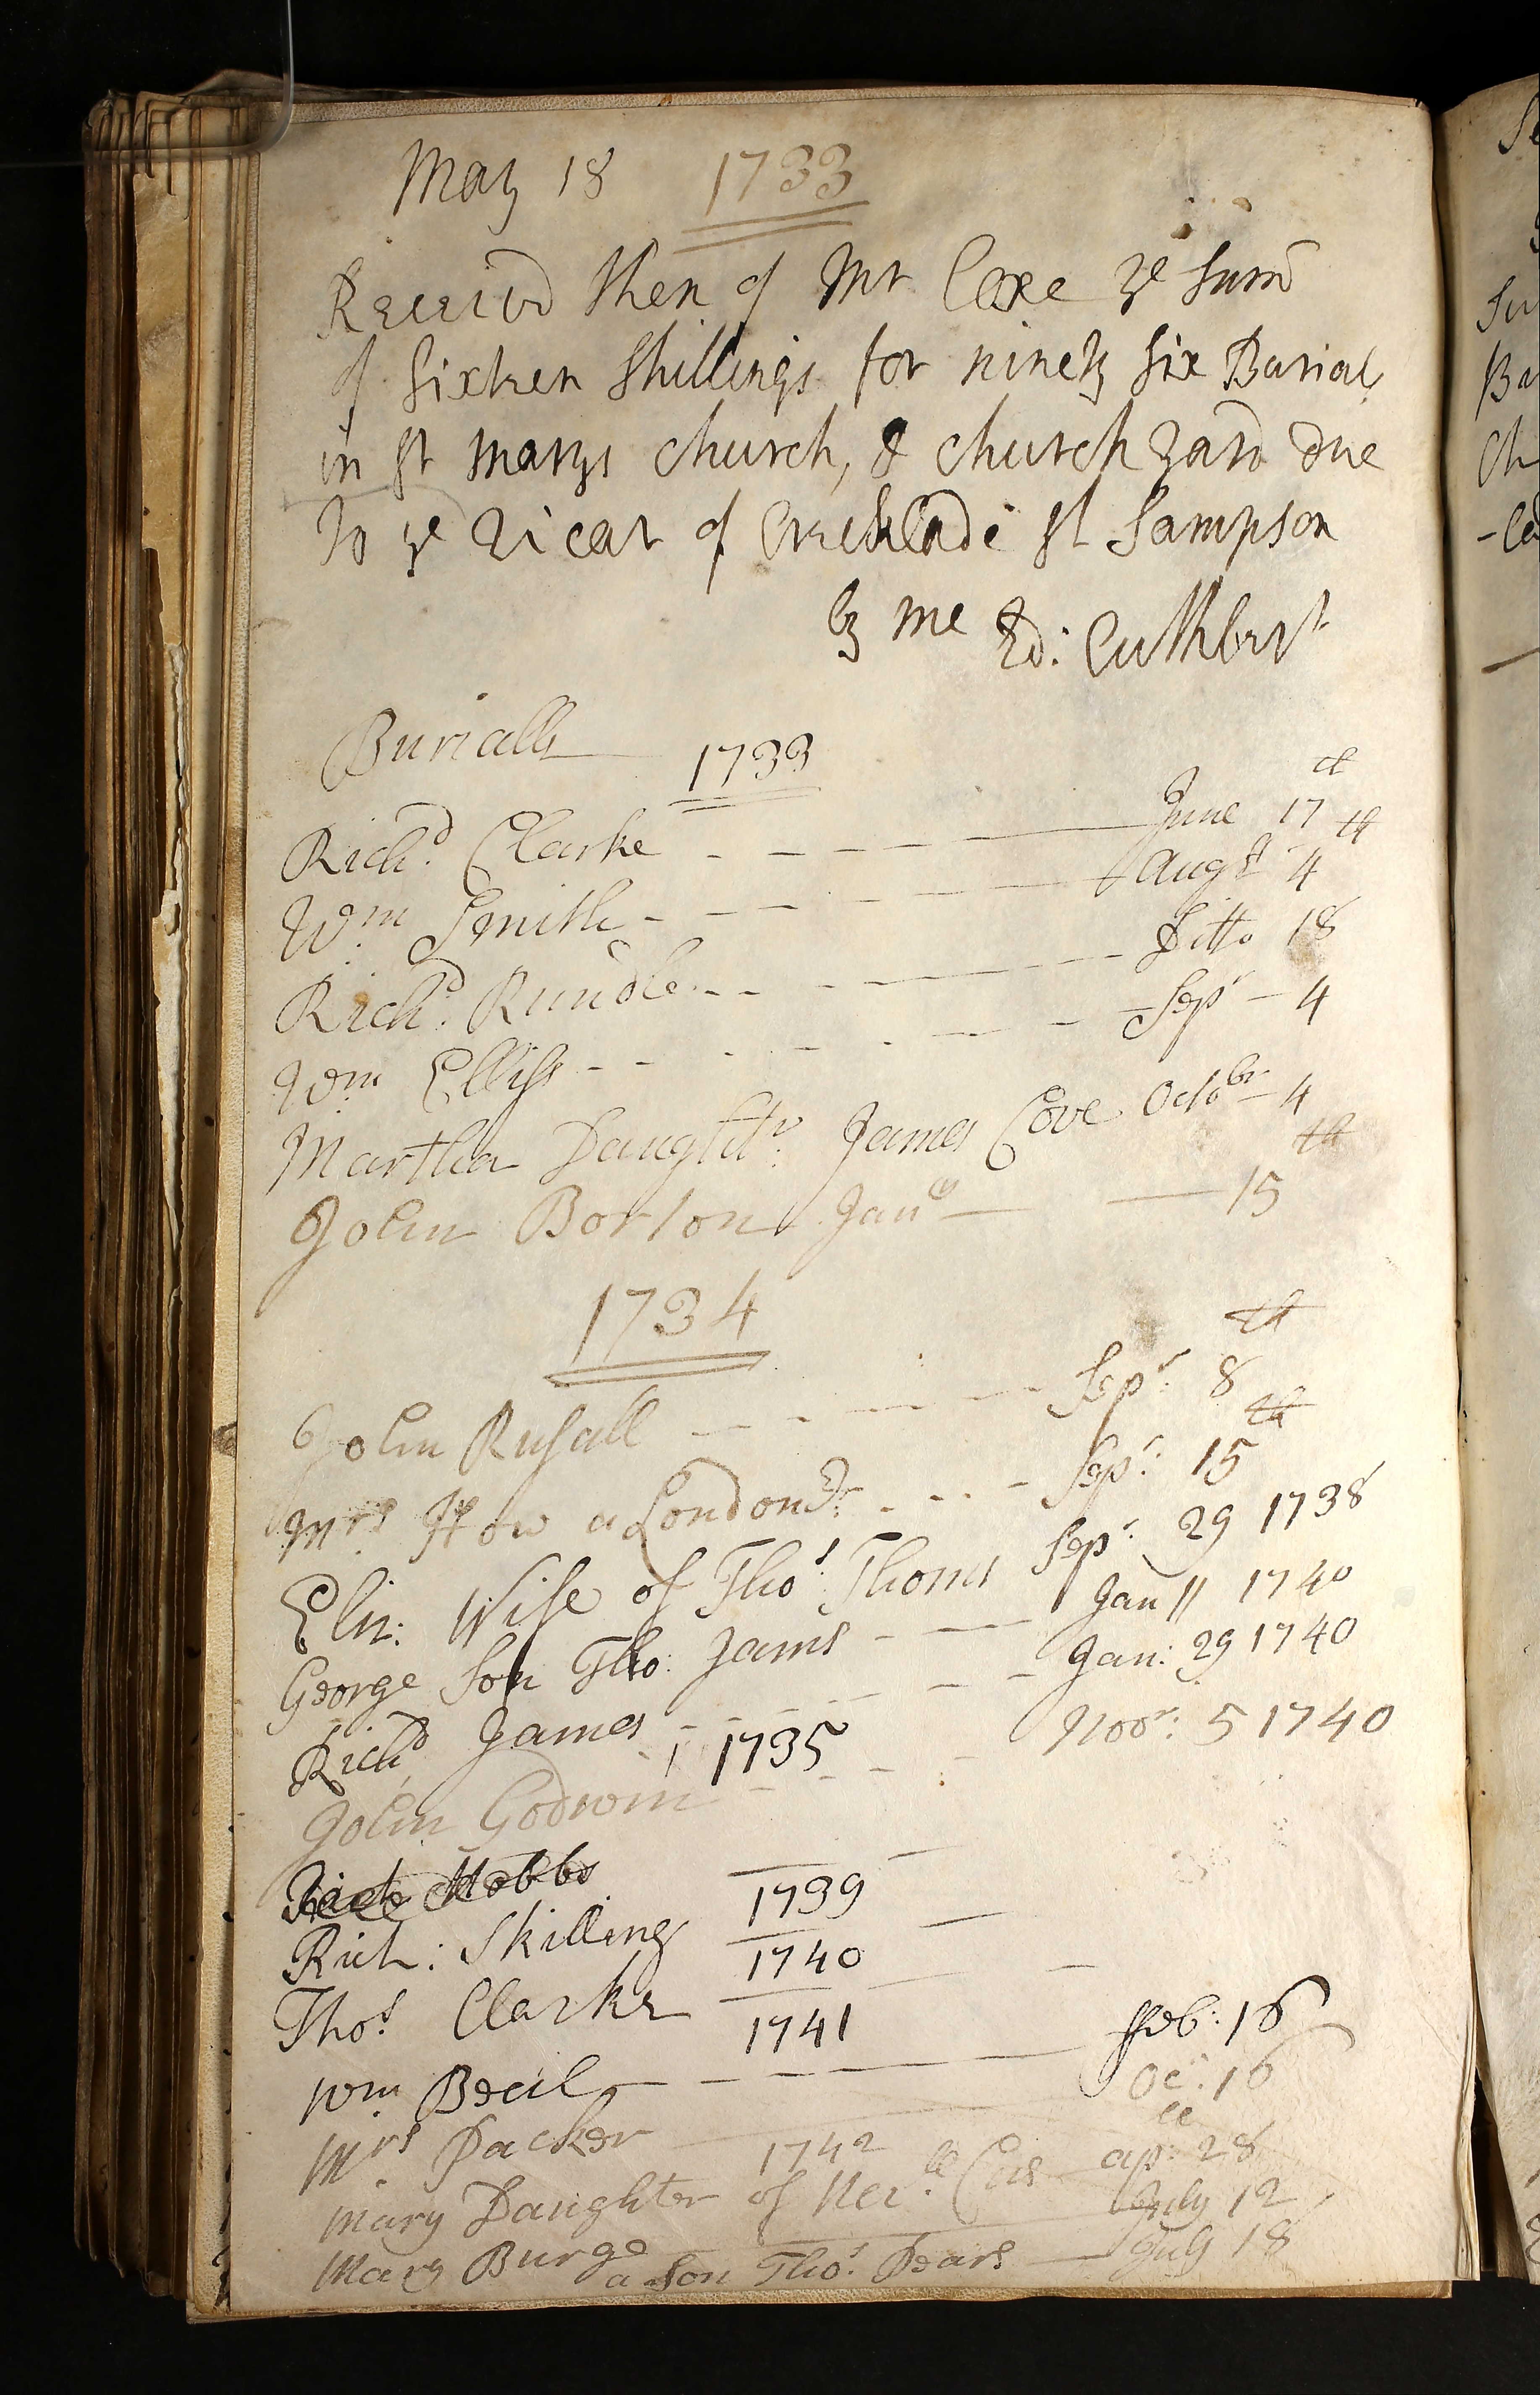 May 18 1733
Received then of Mr Coxe ye Sum
of Sixteen Shillings for ninety Six Burials
in St Marys Church, & Church yard due
to ye Vicar of Cricklade St Sampson
by me Ed: Cuthbert
Burialls 1733
Richd. Clarke - - - - June 17th
Wm. Smith - - - - Augst 4th
Richd. Rundle - - - - Ditto 18
Wm. Elliss - - - - Sepr - 4
Martha Daughtr. James Cove Octobr - 4
John Borton Jany - 15th
1734
John Rusall - - - - Sepr. 8th
Mrs. How a Londoner. - - - - Sepr. 15th
Eliz: Wife of Thos. Thoms Sepr. 29 1738
George Son Tho: Jams - - Jan 11 1740
Richd James - - - Jan: 29 1740
1735
John Godwin - - - Novr: 5 1740
Hobbs
1739
Rich: Skilling
1740
Thos. Clarke
1741
Wm. Becil - - - - ffeb: 16
Mrs. Packer Oc: 16
1742
Mary Daughter of ap: 28
Mary Burge July 12
a Son Thos. Dears July 18